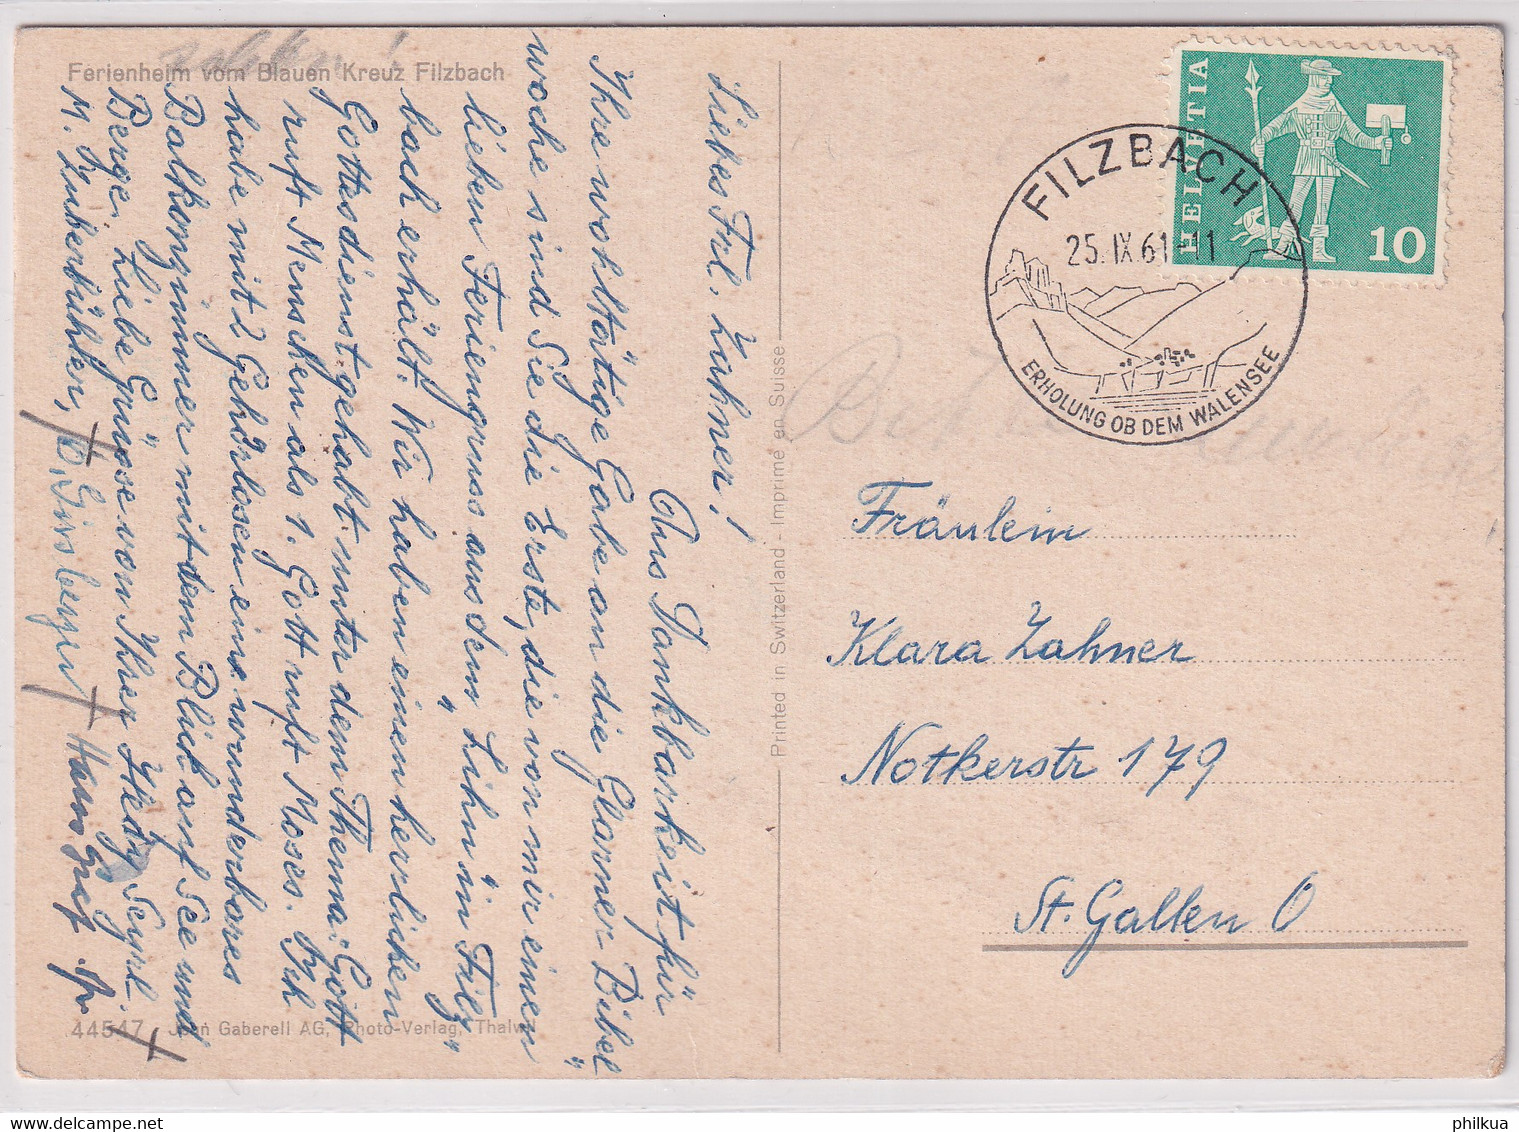 Ferienheim vom Blauen Kreuz Filzbach
Liebes Frl. Zahner!
Aus Dankbarkeit für
Ihre wohltätige Gabe an die Glarner Bibel"
woche sind Sie die Erste, die von mir einen
lieben Feriengruss aus dem „Lihn" in Filz„
bach erhält. Wir haben einen herrlichen
Gottesdienst gehabt unter dem Thema: Gott
ruft Menschen als 1. Gott ruft Moses. Ich
habe mit 2 Gehörlosen eine wunderbares
Balkonzimmer mit dem Blick auf See und
Berge. Liebe Grüsse von Ihrer Hedy
M. Zuberbühler,
Hans
44547 Jean Gaberell AG, Photo-Verlag, Thalwil
Printed in Switzerland - Imprimé en Suisse
HELVETIA
10
FILZBACH
25. IX. 61-11
ERHOLUNG OB DEM WALENSEE
Fräulein
Klara Zahner
Notkerstr 179
St. Gallen O
philkua